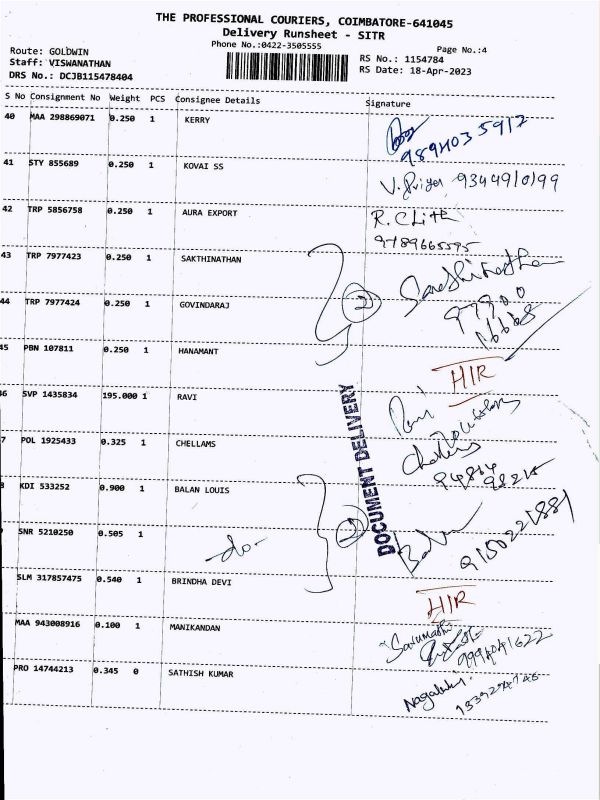 THE PROFESSIONAL COURIERS, COIMBATORE-641045
Delivery Runsheet - SITR
Phone No.:0422-3505555
Page No.:4
Route: GOLDWIN
Staff: VISWANATHAN
DRS No.: DCJB115478404
RS No.: 1154784
RS Date: 18-Apr-2023
S No Consignment No Weight PCS Consignee Details Signature
40 MAA 298869071 0.250 1 KERRY
41 STY 855689 0.250 1 KOVAI SS V. Priya
42 TRP 5856758 0.250 1 AURA EXPORT R.
9789665595
43 TRP 7977423 0.250 1 SAKTHINATHAN
44 TRP 7977424 0.250 1 GOVINDARAJ
2
45 PBN 107811 0.250 1 HANAMANT HIR
SVP 1435834 195.000 1 RAVI Ravi
7 POL 1925433 0.325 1 CHELLAMS
KDI 533252 0.900 1 BALAN LOUIS
SNR 5210250 0.505 1 -do- 2
9150221881
SLM 317857475 0.540 1 BRINDHA DEVI HIR
MAA 943008916 0.100 1 MANIKANDAN
9994041622
PRO 14744213 0.345 0 SATHISH KUMAR
DOCUMENT DELIVERY